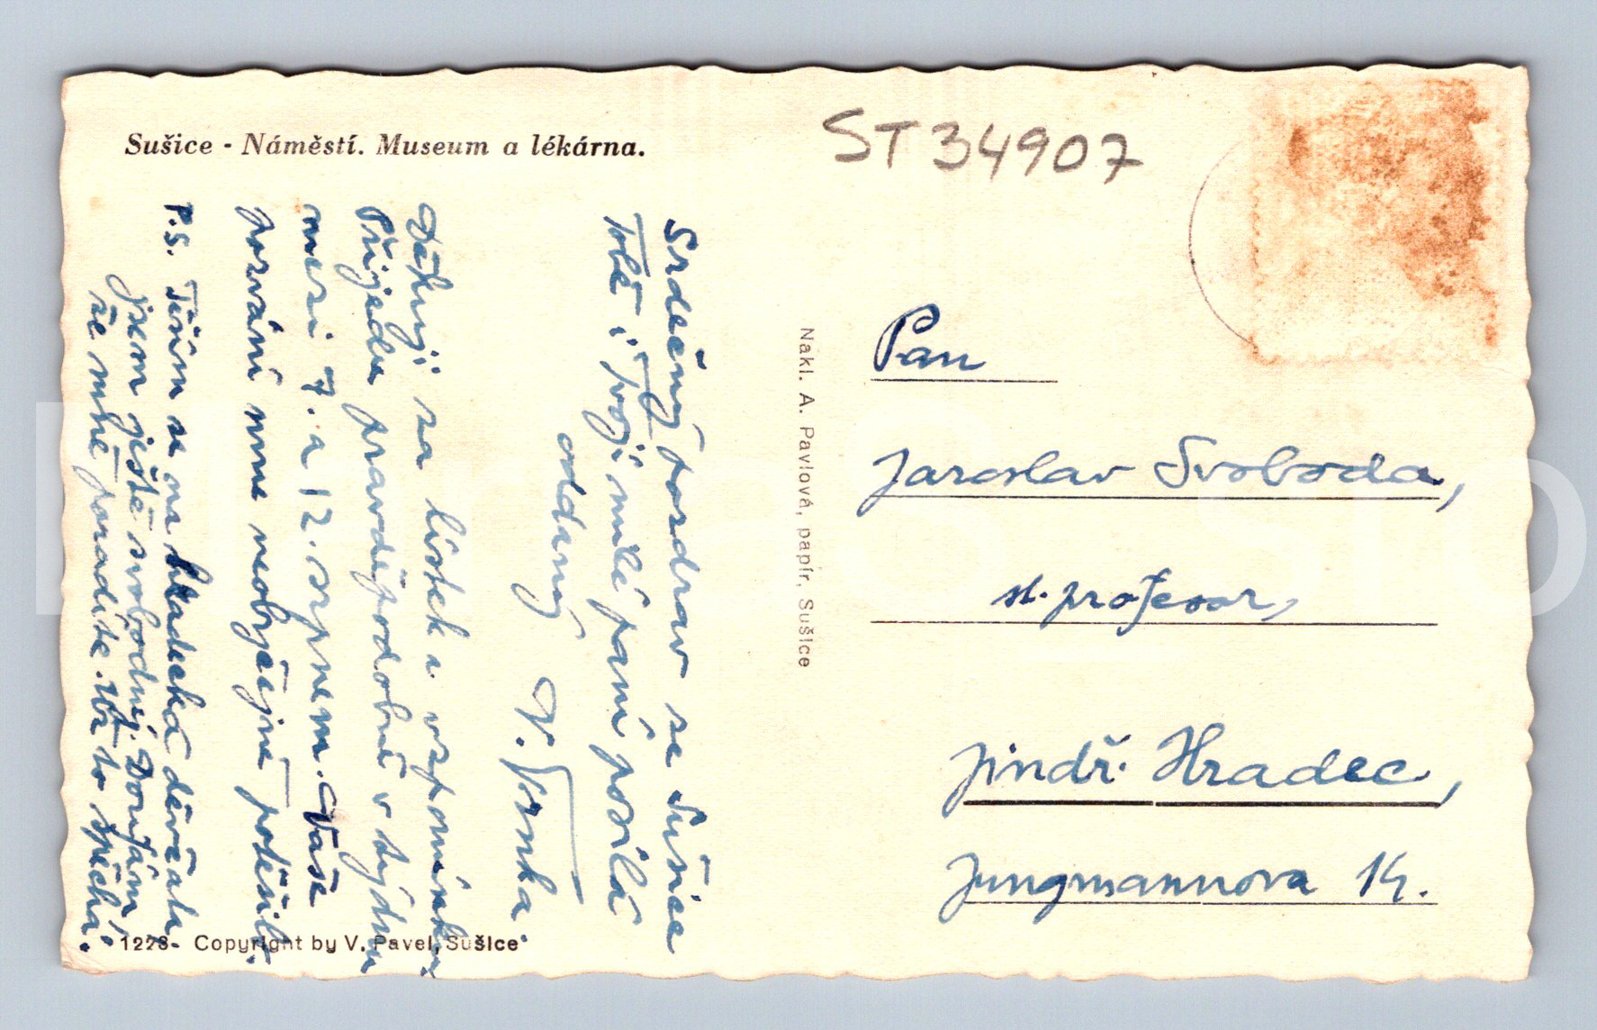 Sušice - Náměstí. Museum a lékárna.
ST 34907
Srdečný pozdrav ze Sušice
Tobě i Tvojí milé paní posílá
oddaný
V. Vrnka
Děkuji za lístek a vzpomínku.
Přijedu pravděpodobně v týdnu
mezi 7. a 12. srpnem. Vaše
pozvání mne neobyčejně potěšilo.
P.S. Těším se na hradecká děvčata
jsem ještě svobodný. Doufám,
že mně poradíte. Už to spěchá.
Nakl. A. Pavlová, papír, Sušice
1223 - Copyright by V. Pavel, Sušice
Pan
Jaroslav Svoboda,
st. profesor,
Jindř. Hradec,
Jungmannova 14.